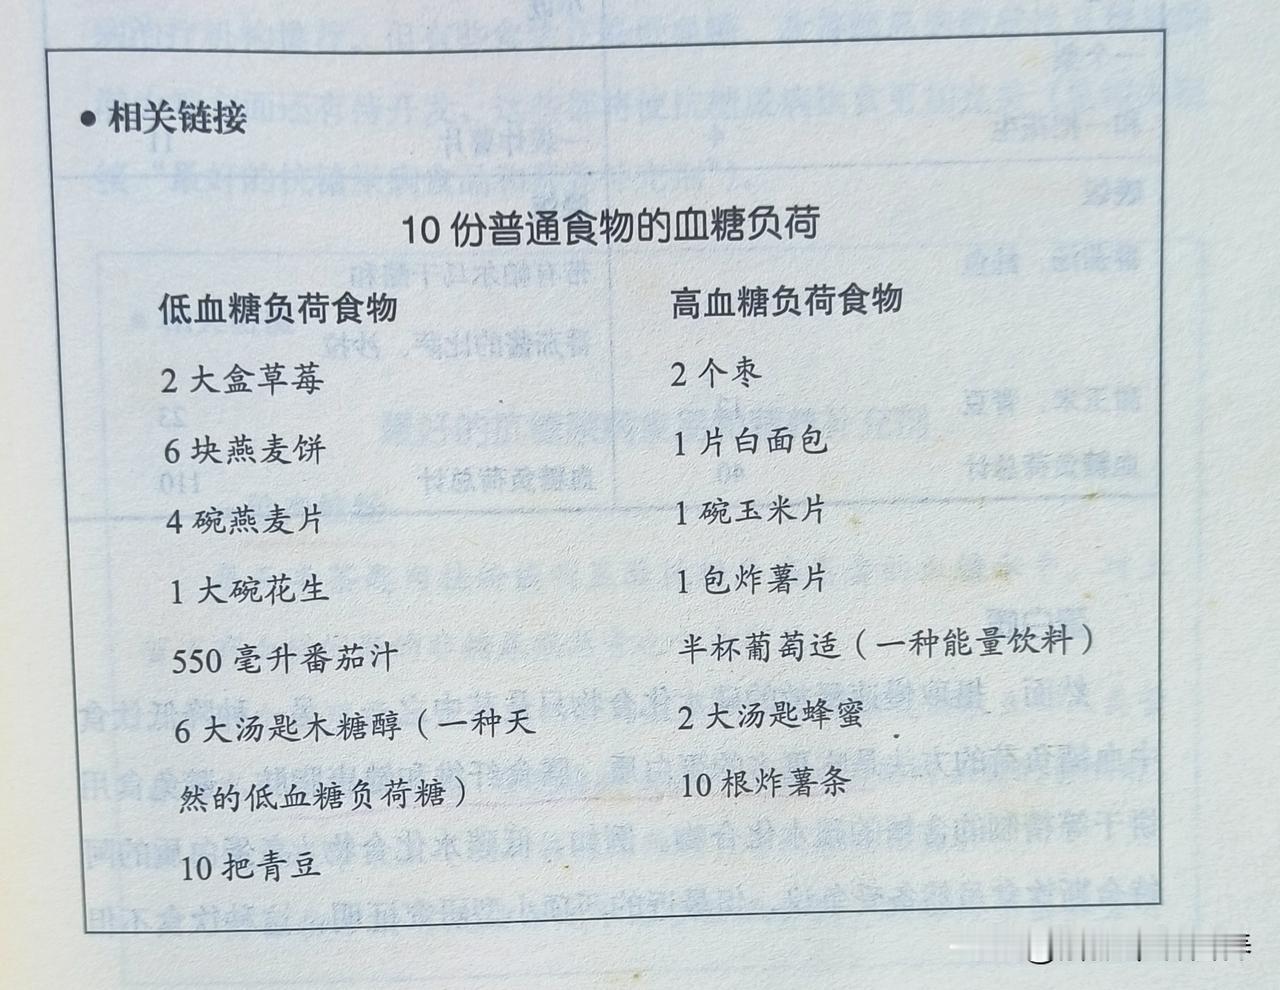 • 相关链接
10 份普通食物的血糖负荷
低血糖负荷食物
2 大盒草莓
6 块燕麦饼
4 碗燕麦片
1 大碗花生
550 毫升番茄汁
6 大汤匙木糖醇（一种天
然的低血糖负荷糖）
10 把青豆
高血糖负荷食物
2 个枣
1 片白面包
1 碗玉米片
1 包炸薯片
半杯葡萄适（一种能量饮料）
2 大汤匙蜂蜜
10 根炸薯条